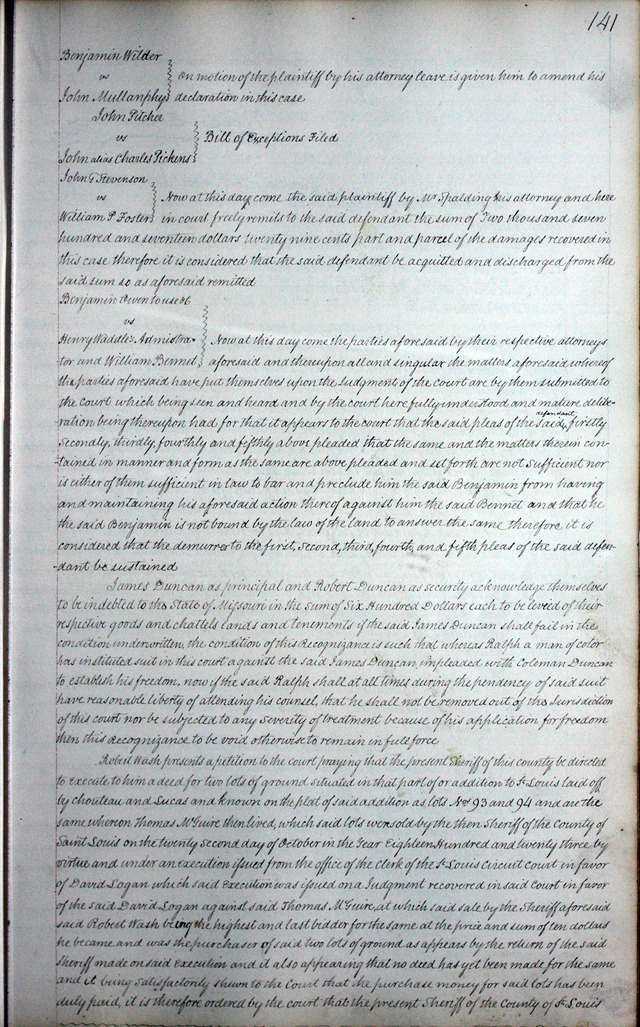 141
Benjamin Wilder
vs
On motion of the plaintiff by his attorney leave is given him to amend his
John Mullanphy declaration in this case
John Pitcher
vs
Bill of Exceptions Filed
John alias Charles Pickens
John G Stevenson
vs
Now at this day come the said plaintiff by Mr Spalding his attorney and here
William P. Foster in court freely remits to the said defendant the sum of Two thousand seven
hundred and seventeen dollars twenty nine cents part and parcel of the damages recovered in
this case therefore it is considered that the said defendant be acquitted and discharged from the
said sum so as aforesaid remitted
Benjamin Owen to use of
vs
Henry Waddles Admistra- Now at this day come the parties aforesaid by their respective attorneys
tor and William Bennet aforesaid and thereupon all and singular the matters aforesaid whereof
the parties aforesaid have put themselves upon the Judgment of the court are by them submitted to
the Court which being seen and heard and by the court here fully understood and mature delibe-
ration being thereupon had for that it appears to the court that the said pleas of the said defendant, firstly
secondly, thirdly, fourthly and fifthly above pleaded that the same and the matters therein con-
tained in manner and form as the same are above pleaded and set forth are not sufficient nor
is either of them sufficient in law to bar and preclude him the said Benjamin from having
and maintaining his aforesaid action thereof against him the said Bennet and that he
the said Benjamin is not bound by the law of the land to answer the same therefore it is
considered that the demurrer to the first, second, third, fourth, and fifth pleas of the said defen-
-dant be sustained
James Duncan as principal and Robert Duncan as security acknowledge themselves
to be indebted to the State of Missouri in the sum of Six Hundred Dollars each to be levied of their
respective goods and chattels lands and tenements if the said James Duncan shall fail in the
condition underwritten, the condition of this Recognizance is such that whereas Ralph a man of color
has instituted suit in this court against the said James Duncan, impleaded with Coleman Duncan
to establish his freedom, now if the said Ralph shall at all times during the pendency of said suit
have reasonable liberty of attending his counsel, that he shall not be removed out of the Jurisdiction
of this court nor be subjected to any severity of treatment because of his application for freedom
then this Recognizance to be void otherwise to remain in full force
Robert Wash presents a petition to the court praying that the present Sheriff of this county be directed
to execute to him a deed for two lots of ground situated in that part of or addition to St Louis laid off
by Chouteau and Lucas and known on the plat of said addition as lots Nos 93 and 94 and are the
same whereon Thomas McGuire then lived, which said lots were sold by the then Sheriff of the County of
Saint Louis on the twenty second day of October in the Year Eighteen Hundred and twenty three by
virtue and under an execution issued from the office of the Clerk of the St Louis Circuit Court in favor
of David Logan which said Execution was issued on a Judgment recovered in said Court in favor
of the said David Logan against said Thomas McGuire, at which said sale by the Sheriff aforesaid
said Robert Wash being the highest and last bidder for the same at the price and sum of ten dollars
he became and was the purchaser of said two lots of ground as appears by the return of the said
Sheriff made on said execution and it also appearing that no deed has yet been made for the same
and it being satisfactorily shewn to the Court that the purchase money for said lots has been
duly paid, it is therefore ordered by the court that the present Sheriff of the County of St Louis